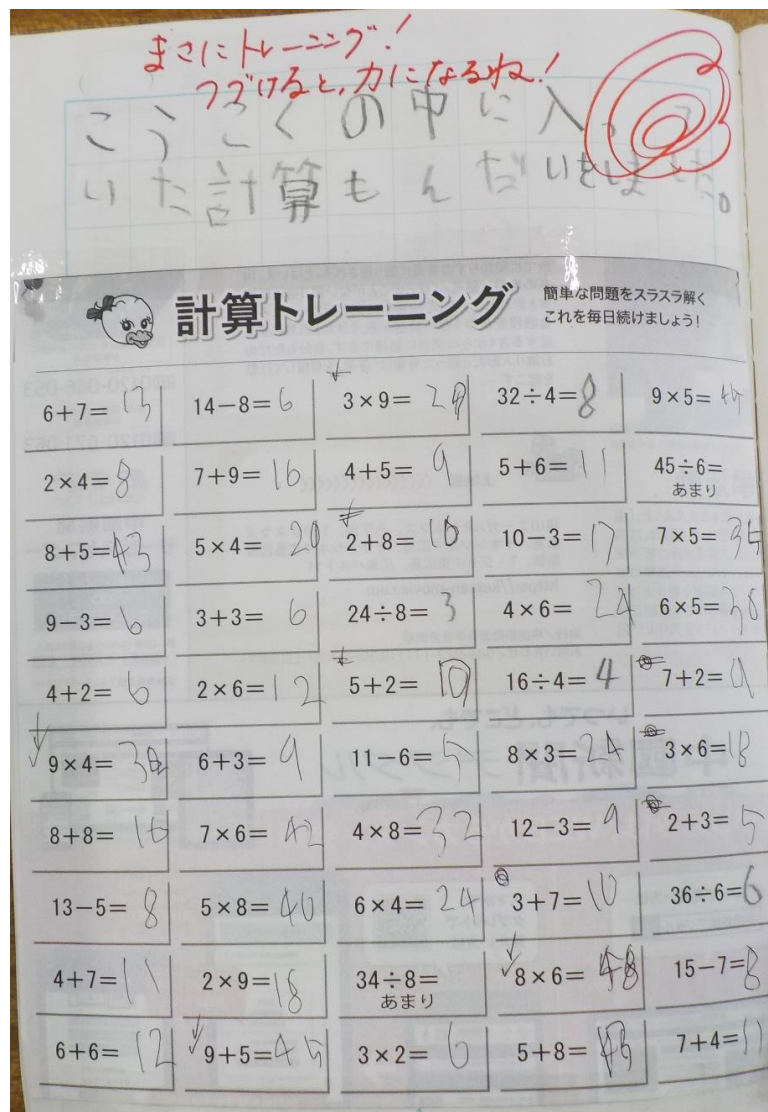 まさにトレーニング!
つづけると、力になるね!
こうこくの中に入って
いた計算もんだいをしました。
計算トレーニング
簡単な問題をスラスラ解く
これを毎日続けましょう!
6+7=13 14−8=6 3×9= 32÷4=8 9×5=45
2×4=8 7+9=16 4+5=9 5+6=11 45÷6=
あまり
8+5=13 5×4=20 2+8=10 10−3=17 7×5=35
9−3=6 3+3=6 24÷8=3 4×6=24 6×5=30
4+2=6 2×6=12 5+2=10 16÷4=4 7+2=9
9×4= 6+3=9 11−6=5 8×3=24 3×6=18
8+8=16 7×6=42 4×8=32 12−3=9 2+3=5
13−5=8 5×8=40 6×4=24 3+7=10 36÷6=6
4+7=11 2×9=18 34÷8= 8×6=48 15−7=8
あまり
6+6=12 9+5=45 3×2=6 5+8=13 7+4=11